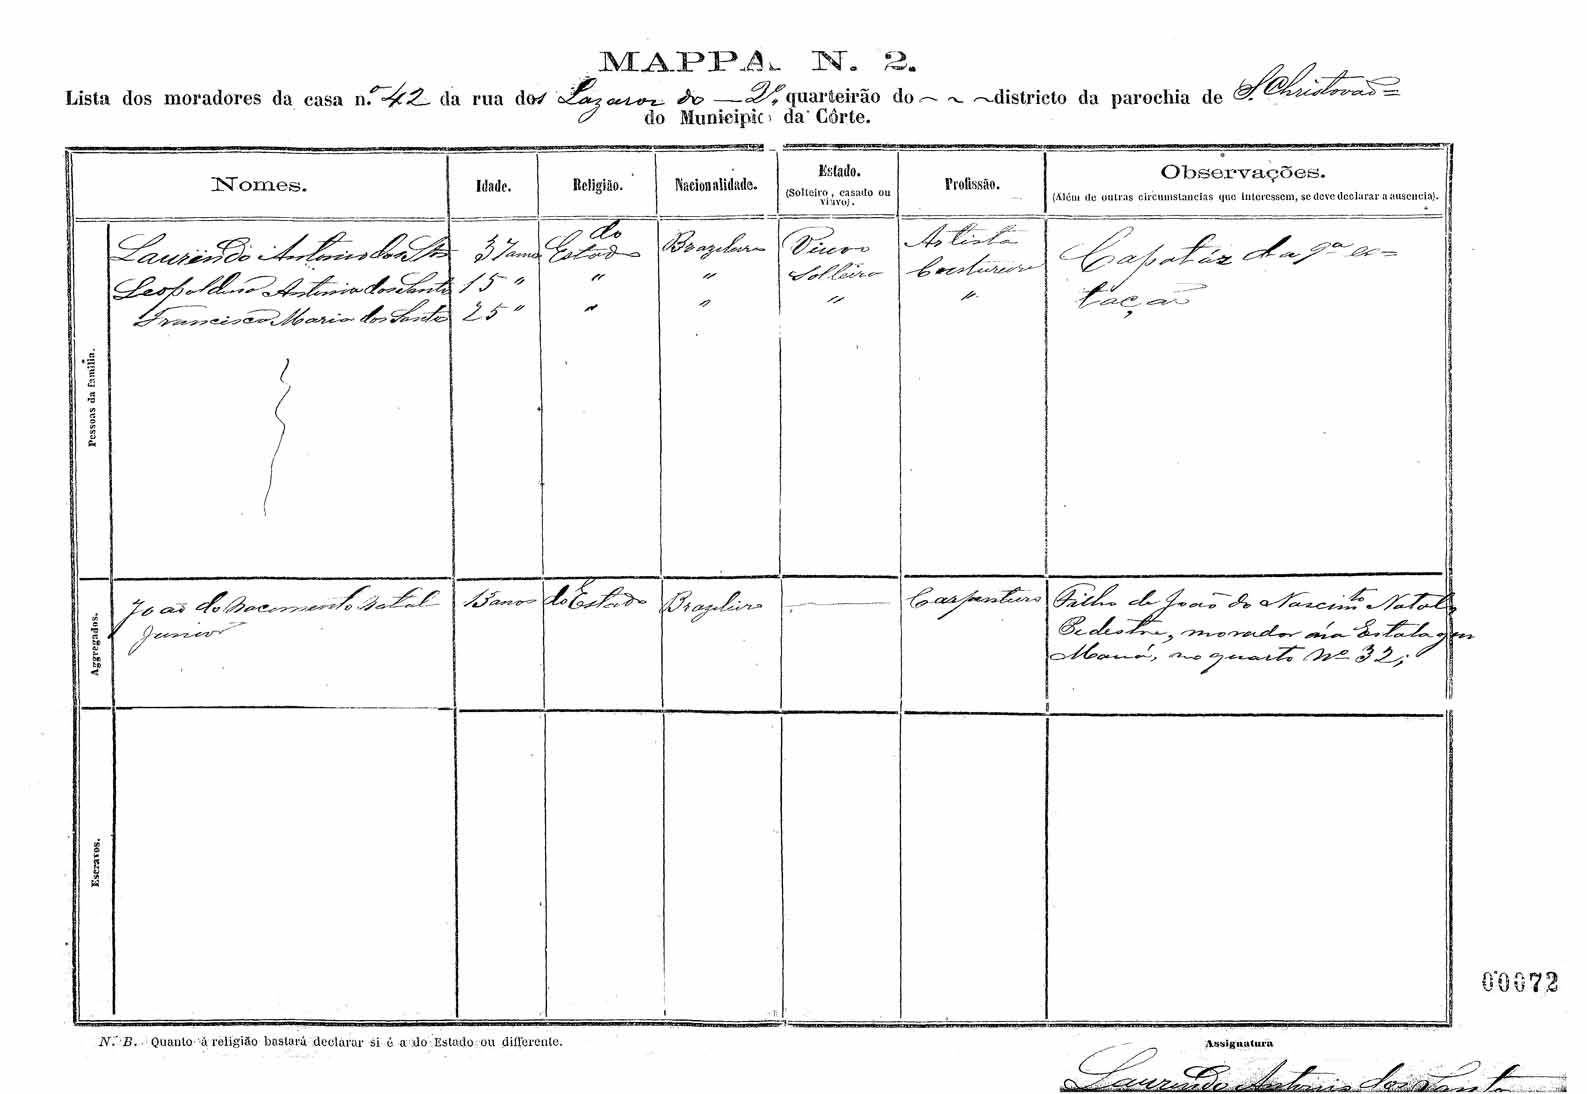 MAPPA N. 2.
Lista dos moradores da casa n.º 42 da rua dos Lazaros do — 2º quarteirão do ~ ~ ~ districto da parochia de S. Christovão =
do Municipio da Côrte.
Nomes. Idade. Religião. Nacionalidade. Estado. (Solteiro, casado ou viuvo). Profissão. Observações. (Além de outras circumstancias que interessem, se deve declarar a ausencia).
Pessoas da familia.
Laurindo Antonio dos Stos 37 annos do Estado Brazileiro Viuvo Artista Capatáz da 9ª es=
Leopoldina Antonia dos Santos 15 " " " Solteira Costureira tação
Francisca Maria dos Santos 25 " " " " "
Aggregados.
João do Nacimento Natal 13 anos do Estado Brazileiro — Carpenteiro Filho de João do Nascimto Natal,
Junior Pedestre, morador na Estalagem
Mauá, no quarto Nº 32;
Escravos.
00072
N. B. Quanto á religião bastará declarar si é a do Estado ou differente.
Assignatura
Laurindo Antonio dos Santos